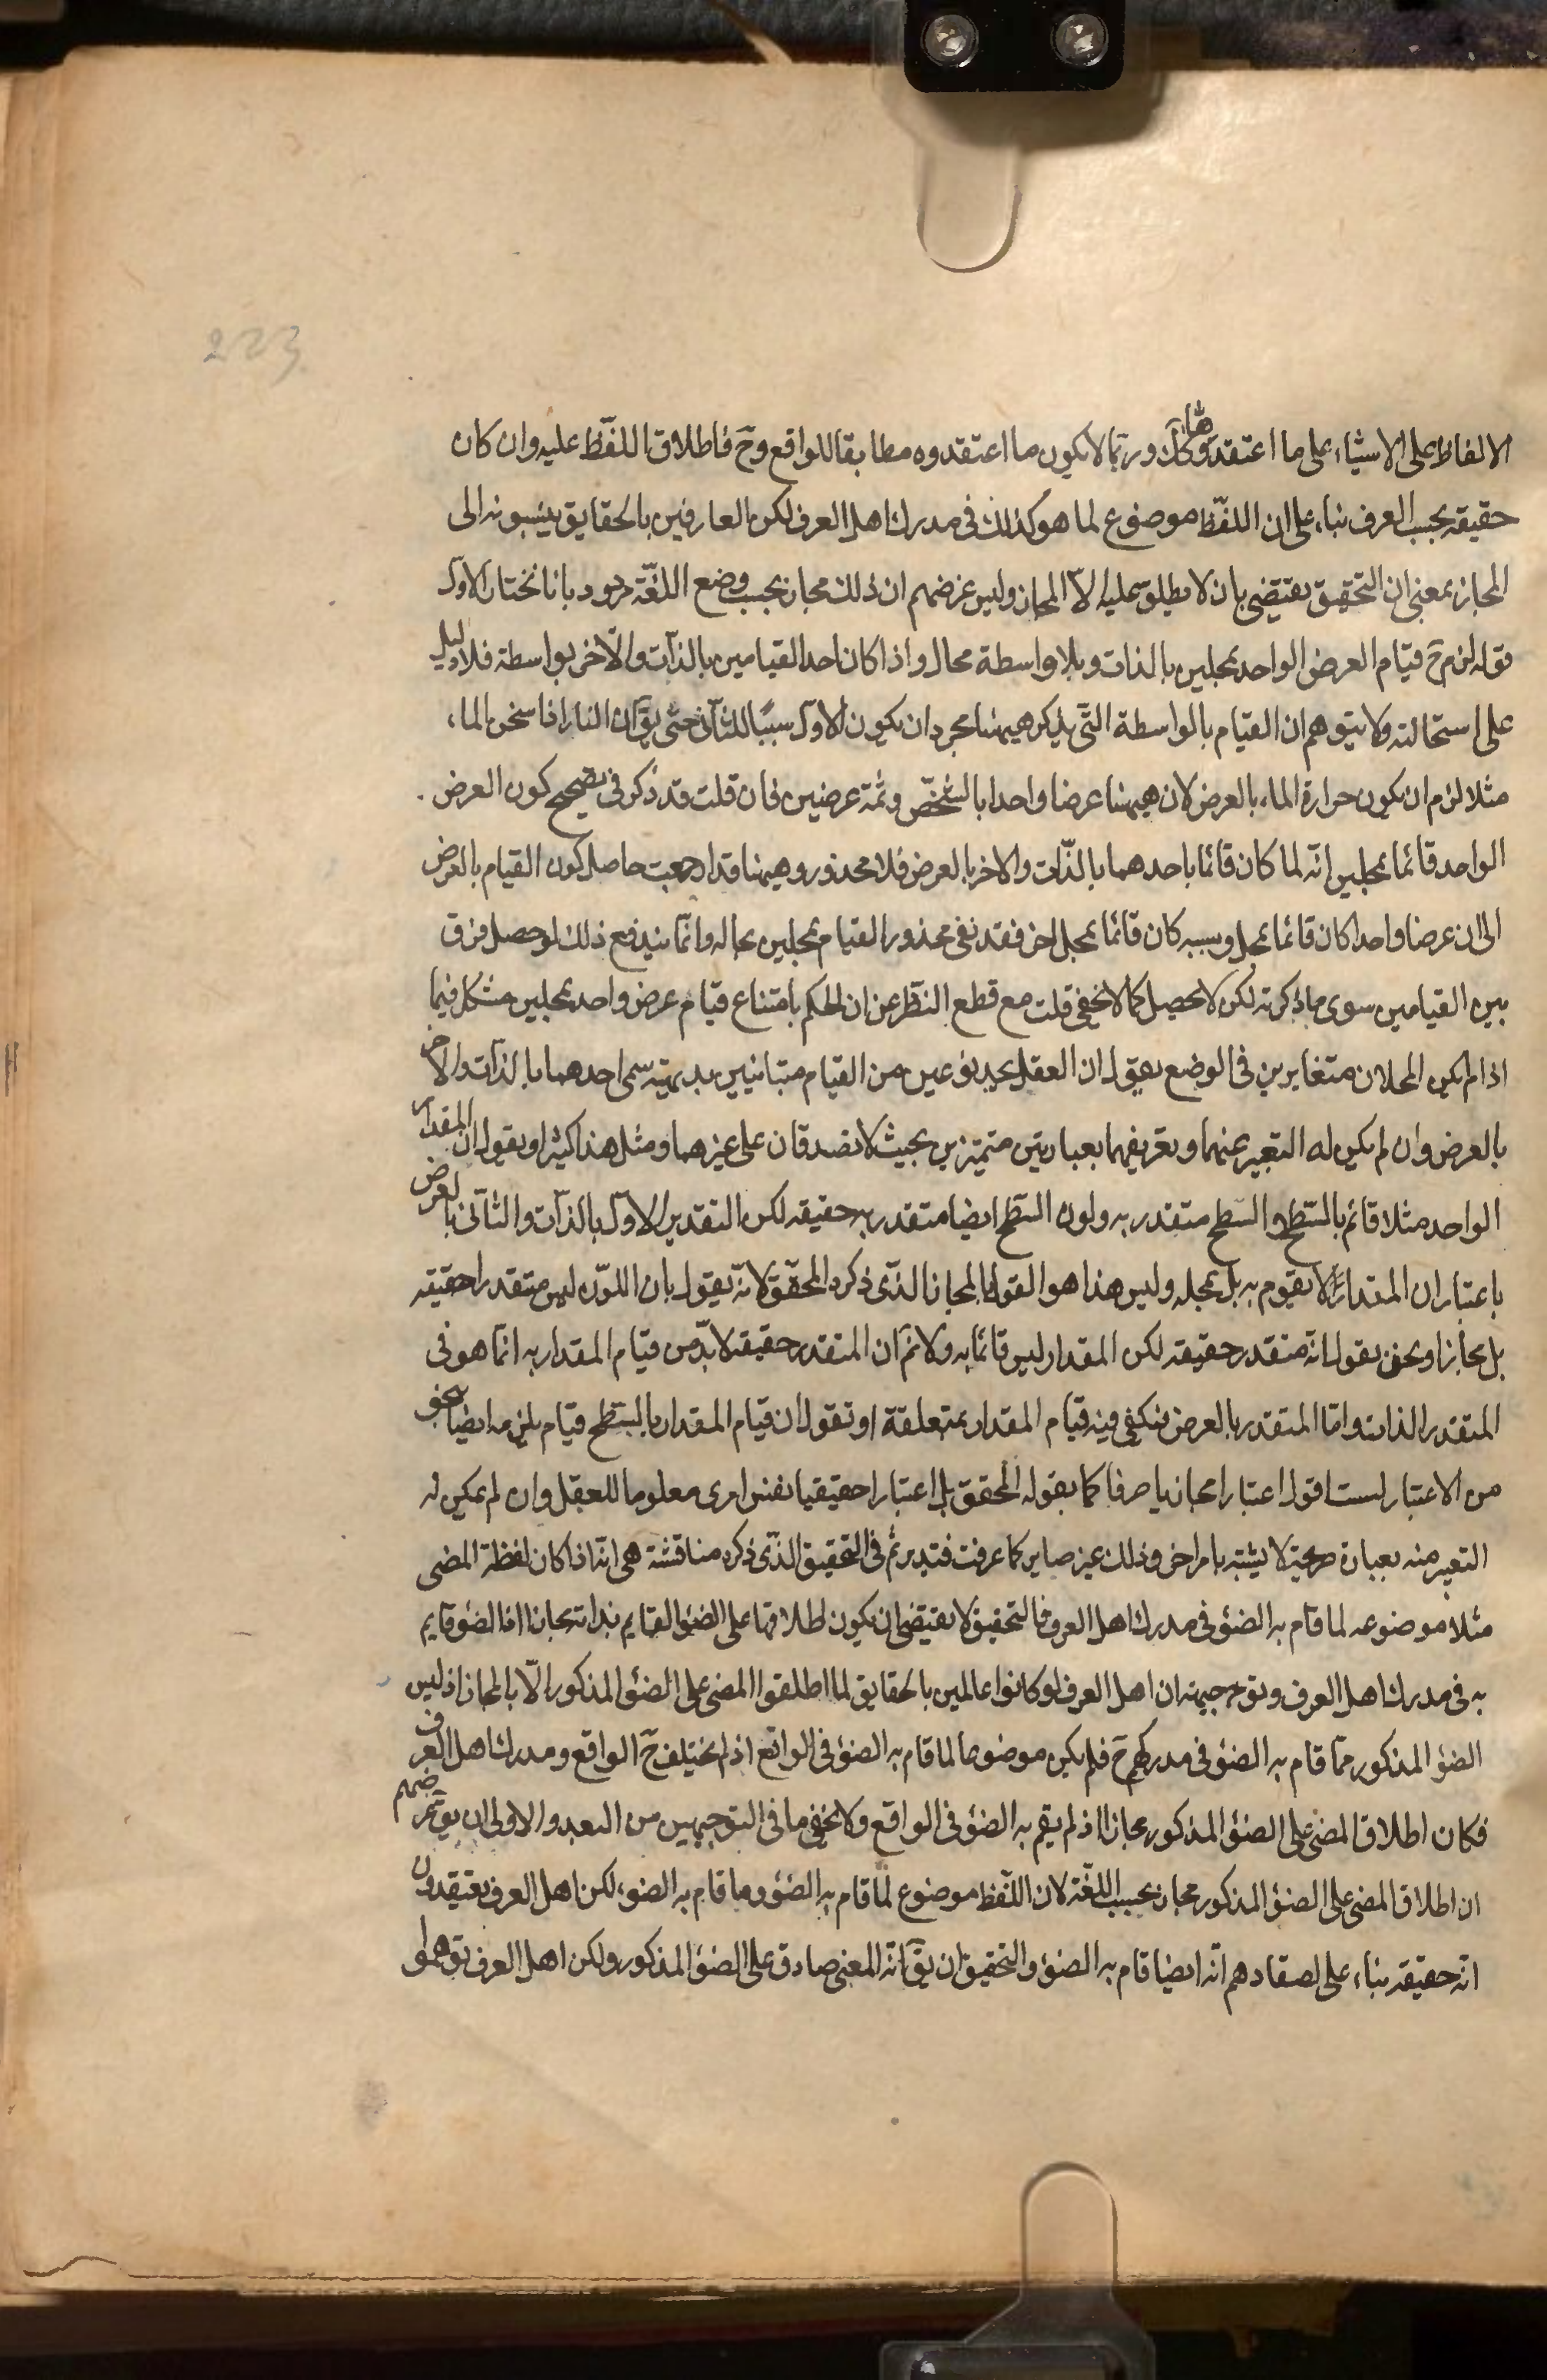 223
الالفاظ على الاشياء على ما اعتقدوها كك وربما لا يكون ما اعتقدوه مطابقا للواقع وح فاطلاق اللفظ عليه وان كان
حقيقه بحسب العرف بناء على ان اللفظ موضوع لما هو كذلك فى مدرك اهل العرف لكن العارفين بالحقايق ينسبونه الى
المجاز بمعنى ان التحقيق يقتضى بان لا يطلق عليه الا المجاز وليس غرضهم ان ذلك مجاز بحسب وضع اللغة مردود بانا نختار الاول
قوله لزم ح قيام العرض الواحد بمحلين بالذات وبلا واسطة محال واذا كان احد القيامين بالذات والاخر بواسطة فلا دليل
على استحالته ولا يتوهم ان القيام بالواسطة التى يذكر هيهنا مجرد ان يكون الاول سببا للثانى حتى يق ان النار اذا سخن الماء
مثلا لزم ان يكون حرارة الماء بالعرض لان هيهنا عرضا واحدا بالشخص وثمة عرضين فان قلت قد ذكر فى تصحيح كون العرض
الواحد قائما بمحلين انه لما كان قائما باحدهما بالذات والاخر بالعرض فلا محذور وهيهنا قد ارجعت حاصل كون القيام بالعرض
الى ان عرضا واحدا كان قائما بمحل وبسببه كان قائما بمحل اخر فقد نفى محذور القيام بمحلين بحاله وانما يندفع ذلك لو حصل فرق
بين القيامين سوى ما ذكرته لكن لا تحصيل كما لا يخفى قلت مع قطع النظر عن ان الحكم بامتناع قيام عرض واحد بمحلين مشكل فيما
اذا لم يكن المحلان متغايرين فى الوضع يق ان العقل يجد نوعين من القيام متباينين بديهية سمى احدهما بالذات والاخر
بالعرض وان لم يكن له التعبير عنهما وتعريفهما بعبارتين متميزين بحيث لا تصدقان على غيرهما ومثل هذا كثير او يقول ان المقدار
الواحد مثلا قائم بالسطح والسطح متقدر به ولون السطح ايضا متقدر به حقيقه لكن التقدير الاول بالذات والثانى بالعرض
باعتبار ان المقدار لا يقوم به بل بمحله وليس هذا هو القول بالمجاز الذى ذكره المحقق لانه يقول بان اللون ليس متقدرا حقيقه
بل مجازا ونحن نقول انه متقدر حقيقه لكن المقدار ليس قائما به ولا نم ان المتقدر حقيقه لا بد من قيام المقدار به انما هو فى
المتقدر بالذات واما المتقدر بالعرض فيكفى فيه قيام المقدار بمتعلقه او نقول ان قيام المقدار بالسطح قيام يلزمه ايضا بنحو
من الاعتبار لست اقول اعتبارا مجازيا صرفا كما يقوله المحقق بل اعتبارا حقيقيا نفس امرى معلوما للعقل وان لم يمكن له
التعبير منه بعبارة صريحة لا يشتبه بامر اخر وذلك غير صاير كما عرفت فتدبر ثم فى التحقيق الذى ذكره مناقشة هى انه اذا كان لفظة المضى
مثلا موضوعه لما قام به الضوء فى مدرك اهل العرف فالتحقيق لا يقتضى ان يكون اطلاقها على الضوء القايم بذاته مجازا اذا الضوء قايم
به فى مدرك اهل العرف وتوجيهه ان اهل العرف لو كانوا عالمين بالحقايق لما اطلقوا المضى على الضوء المذكور الا بالمجاز اذ ليس
الضوء المذكور مما قام به الضوء فى مدركهم ح فلم يكن موضوعا لما قام به الضوء فى الواقع اذ لم يختلف ح الواقع ومدرك اهل العرف
فكان اطلاق المضى على الضوء المذكور مجازا اذ لم يقم به الضوء فى الواقع ولا يخفى ما فى التوجيهين من البعد والاولى ان يق غرضهم
ان اطلاق المضى على الضوء المذكور مجاز بحسب اللغة لان اللفظ موضوع لما قام به الضوء وما قام به الضوء لكن اهل العرف يعتقدون
انه حقيقه بناء على اعتقادهم انه ايضا قام به الضوء والتحقيق ان يق انه المعنى صادق على الضوء المذكور ولكن اهل العرف توهموا